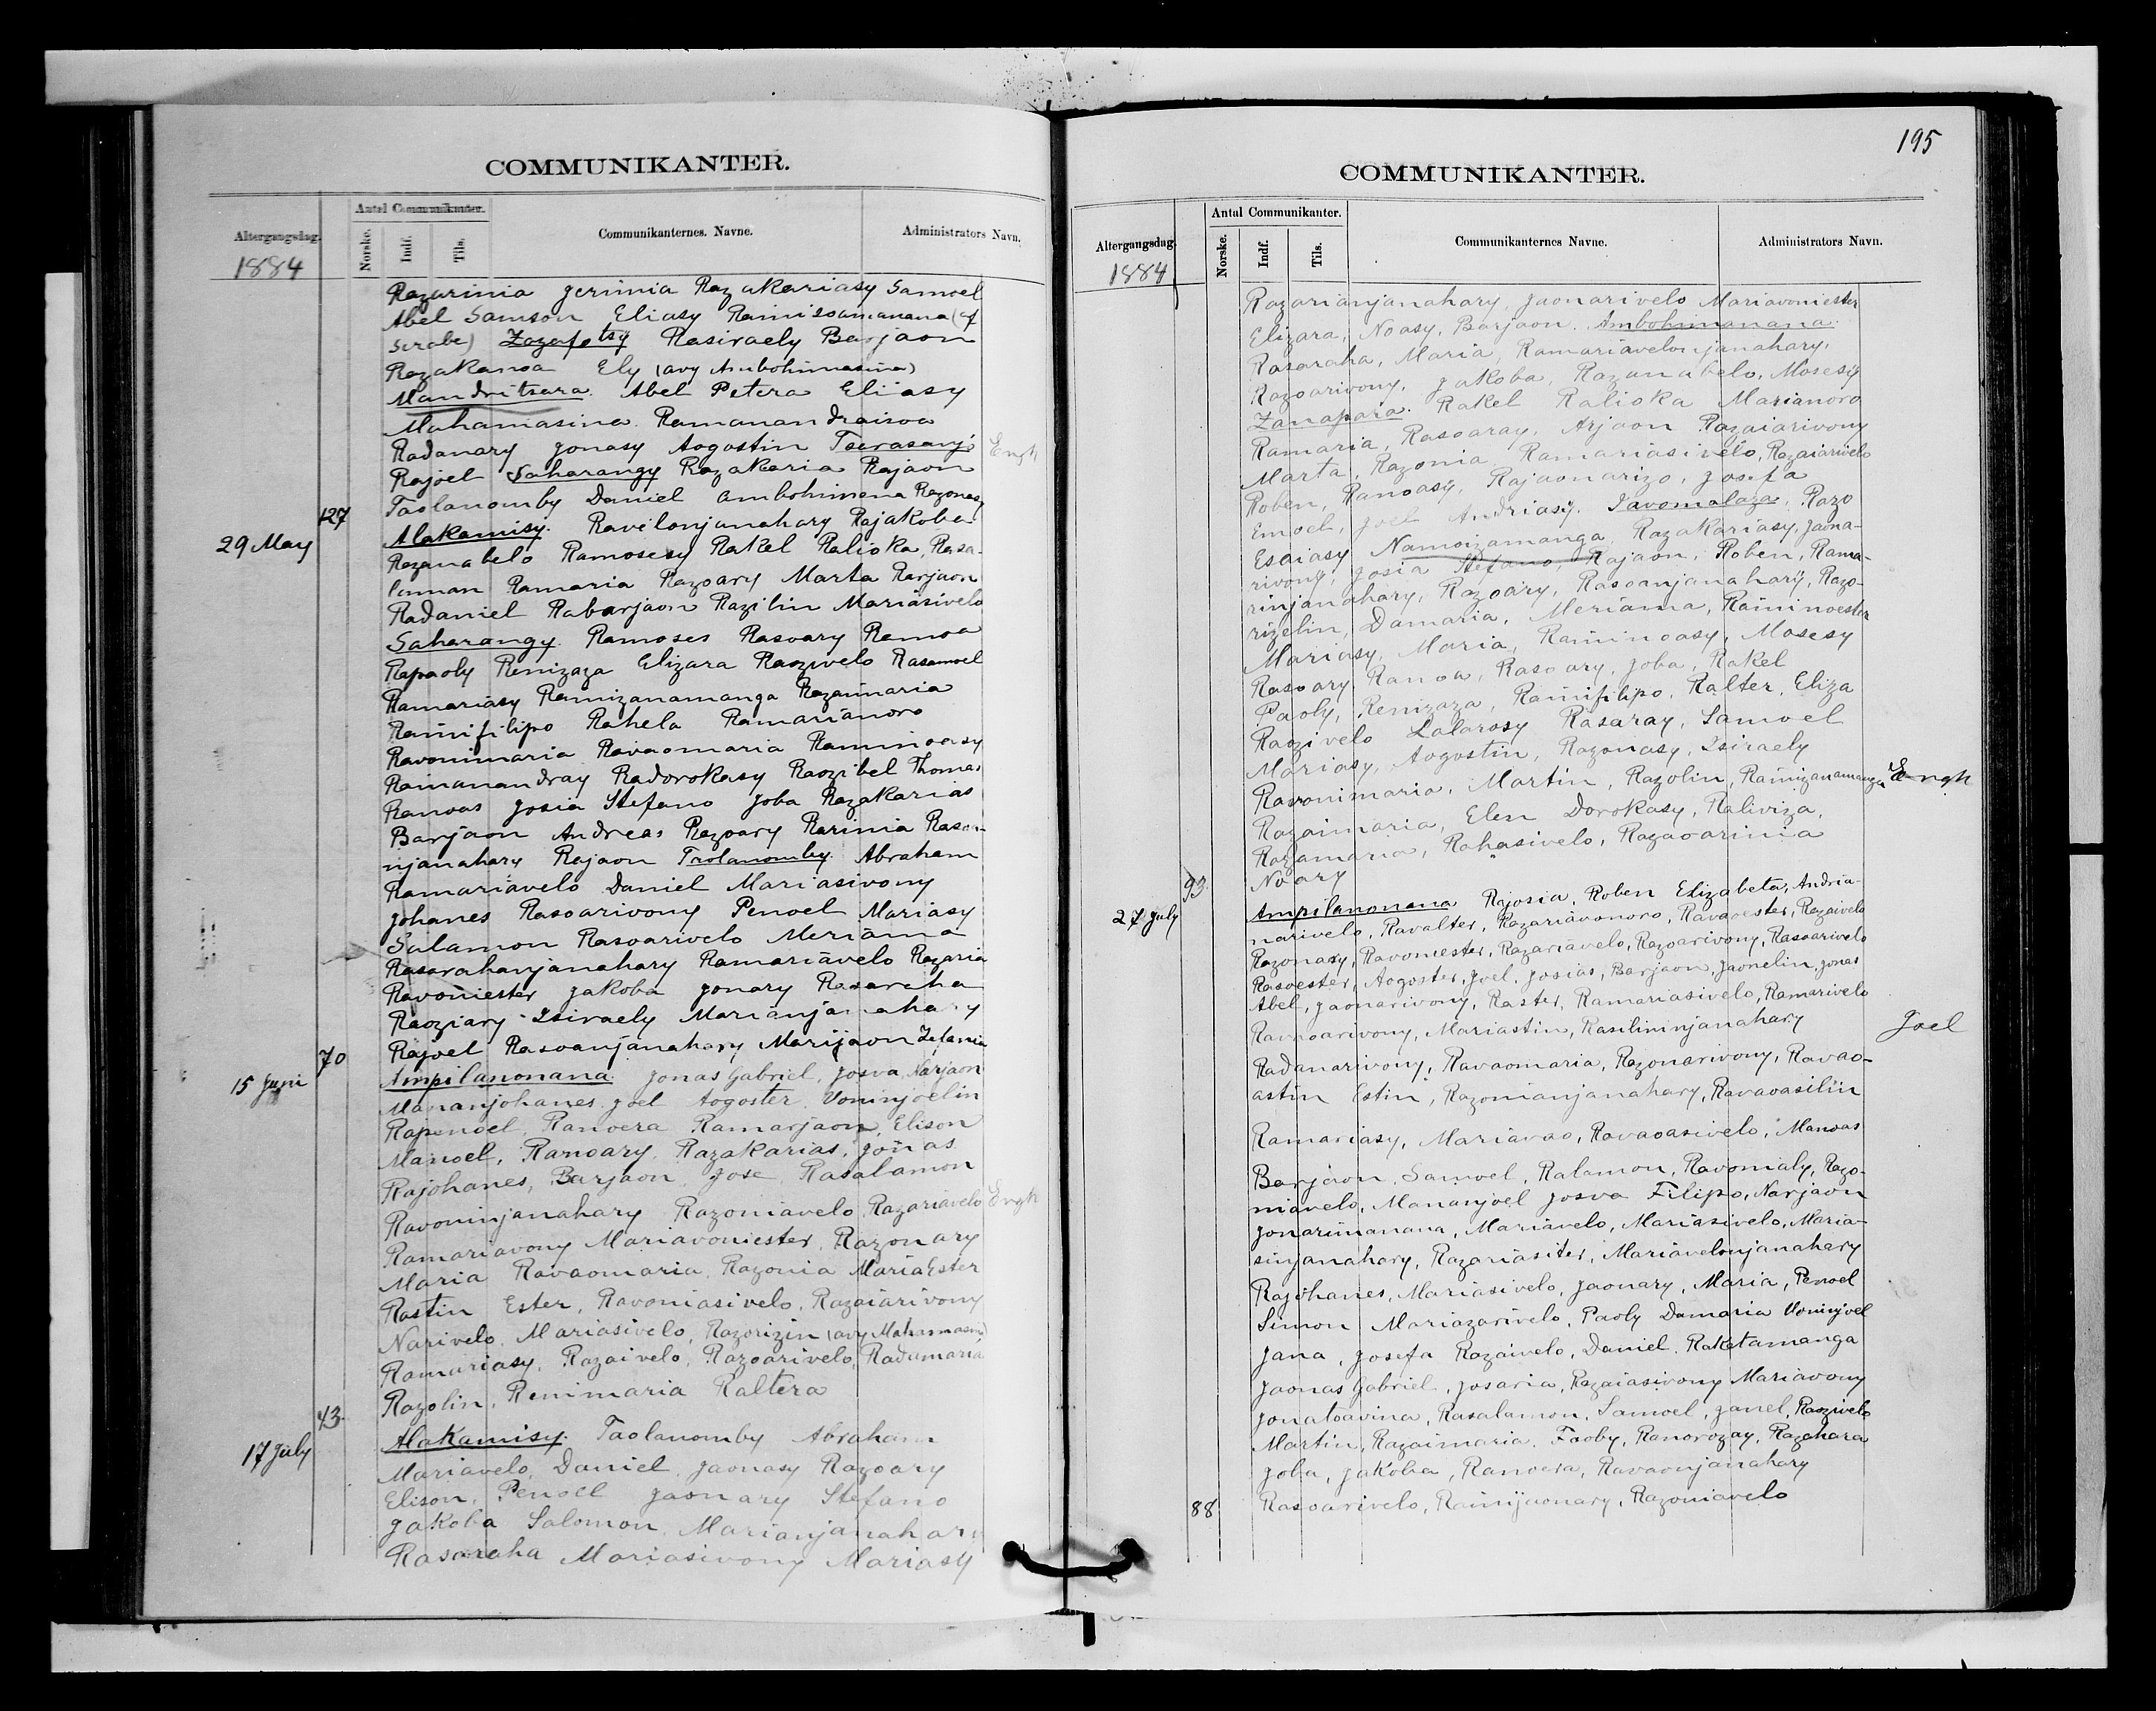 COMMUNIKANTER.
Altergangsdag. Antal Communikanter. Communikanternes. Navne. Administrators Navn.
Norske. Indf. Tils.
1884
Razarinia Jerimia Razakariasy Samoel
Abel Samson Eliasy Rainisoamanana (of
Sirabe) Zazafotsy Rasiraely Barjaon
Razakanoa Ely (avy Ambohimasina)
Mandritsara. Abel Petera Eliasy
Mahamasina. Ramanandraisoa
Radanary Jonasy Aogostin Tserasanjo Engh
Rajoel Saharangy Razakaria Rajaon
127 Taolanomby Daniel Ambohimena Razonasy
29 May Alakamisy. Ravelonjanahary Rajakoba
Razanabelo Ramosesy Rakel Ralioka, Rasa-
laman Ramaria Razoary Marta Rarjaon
Radaniel Rabarjaon Razilin Mariasivelo
Saharangy. Ramoses Rasoary Ramoa
Rapaoly Renizaza Elizara Raozivelo Rasamoel
Ramariasy Ramizanamanga Razaimaria
Rainifilipo Rahela Ramarianoro
Ravonimaria Ravaomaria Raminoasy
Ramanandray Radorokasy Raozibel Thomas
Ranoas Josia Stefano Joba Razakarias
Barjaon Andreas Razoary Rarinia Rasoa-
njanahary Rajaon Taolanomby. Abraham
Ramariavelo Daniel Mariasivony
Johanes Rasoarivony Penoel Mariasy
Salamon Rasoarivelo Meriama
Rasarahanjanahary Ramariavelo Razaria
Ravoniester Jakoba Jonary Rasaraha
Raoziary Isiraely Marianjanahary
70 Rajoel Rasoanjanahary Marijaon Zefania
15 Juni Ampilanonana. Jonas Gabriel, Josva, Narjaon
Mananjohanes Joel Aogoster Voninjoelin
Rapenoel, Ranoera Ramarjaon, Elison
Manoel, Ranoary, Razakarias, Jonas
Rajohanes, Barjaon Jose Rasalamon
Ravoninjanahary Razoniavelo Razariavelo Engh
Ramariavony Mariavoniester, Razonary
Maria Ravaomaria, Razonia Maria Ester
Rastin Ester, Ravoniasivelo, Razaiarivony
Narivelo, Mariasivelo, Razorizin (avy Mahamasin)
Ramariasy, Razaivelo, Razoarivelo, Radamaria
43. Razolin, Renimaria Raltera
17 July Alakamisy. Taolanomby Abraham
Mariavelo, Daniel, Jaonasy Razoary
Elison, Penoel Jaonary Stefano
Jakoba Salomon, Marianjanahary
Rasaraha Mariasivony Mariasy
195
COMMUNIKANTER.
Altergangsdag. Antal Communikanter. Communikanternes Navne. Administrators Navn.
Norske. Indf. Tils.
1884
Razarianjanahary, Jaonarivelo Mariavoniester
Elizara, Noasy, Barjaon. Ambohimanana.
Rasaraha, Maria, Ramariavelonjanahary,
Razoarivony, Jakoba, Razanabelo, Mosesy
Zanapara. Rakel Ralioka Marianoro
Ramaria, Rasoaray, Arjaon Razaiarivony
Marta, Razonia Ramariasivelo, Razaiarivelo
Roben, Ranoasy, Rajaonarizo, Josefa
Emoel, Joel Andriasy. Javomalaza, Razo
Esaiasy Namoizamanga. Razakariasy, Jaona-
rivony, Josia Stefano, Rajaon, Roben, Rama-
rinjanahary, Razoary, Rasoanjanahary, Razo-
rizelin, Damaria, Meriama, Raininoester
Mariasy, Maria, Raininoasy, Mosesy
Rasoary Ranoa, Rasoary, Joba, Rakel
Paoly, Renizaza, Rainifilipo, Ralter, Eliza
Raozivelo Lalarosy Rasaray, Samoel
Mariasy, Aogostin, Razonasy, Isiraely
Ravonimaria, Martin, Razolin, Rainizanamanga Engh
Razaimaria, Elen Dorokasy, Raliviza,
Razamaria, Rahasivelo, Razaoarinia
93. Noary
27 July Ampilanonana Rajosia, Roben Elizabeta, Andria-
narivelo, Ravalter, Razariavonoro, Ravaoester, Razaivelo
Razonasy, Ravoniester, Razariavelo, Razoarivony, Rasoarivelo
Rasoester, Aogoster, Joel, Josias, Barjaon, Jaonelin, Jonas
Abel, Jaonarivony, Raster, Ramariasivelo, Ramarivelo
Ranoarivony, Mariastin, Rasilininjanahary Joel
Radanarivony, Ravaomaria, Razonarivony, Ravao-
astin Estin, Razonianjanahary, Ravaoasilin
Ramariasy, Mariavao, Ravaoasivelo, Manoas
Barjaon, Samoel, Ralamon, Ravonialy, Razo-
niavelo, Mananjoel Josva Filipo, Narjaon
Jonarimanana, Mariavelo, Mariasivelo, Maria-
sinjanahary, Razariasiter, Mariavelonjanahary
Rajohanes, Mariasivelo, Jaonary, Maria, Penoel
Simon Mariazarivelo, Paoly Damaria Voninjoel
Jana, Josefa Razaivelo, Daniel, Raketamanga
Jaonas Gabriel, Josaria, Razaiasivony Mariavony
Jonatoavina, Rasalamon, Samoel, Janel, Raozivelo
Martin, Razaimaria, Faoby, Ranorozay, Razahara
Joba, Jakoba, Ranoera, Ravaonjanahary
88 Rasoarivelo, Rainijaonary, Razoniavelo